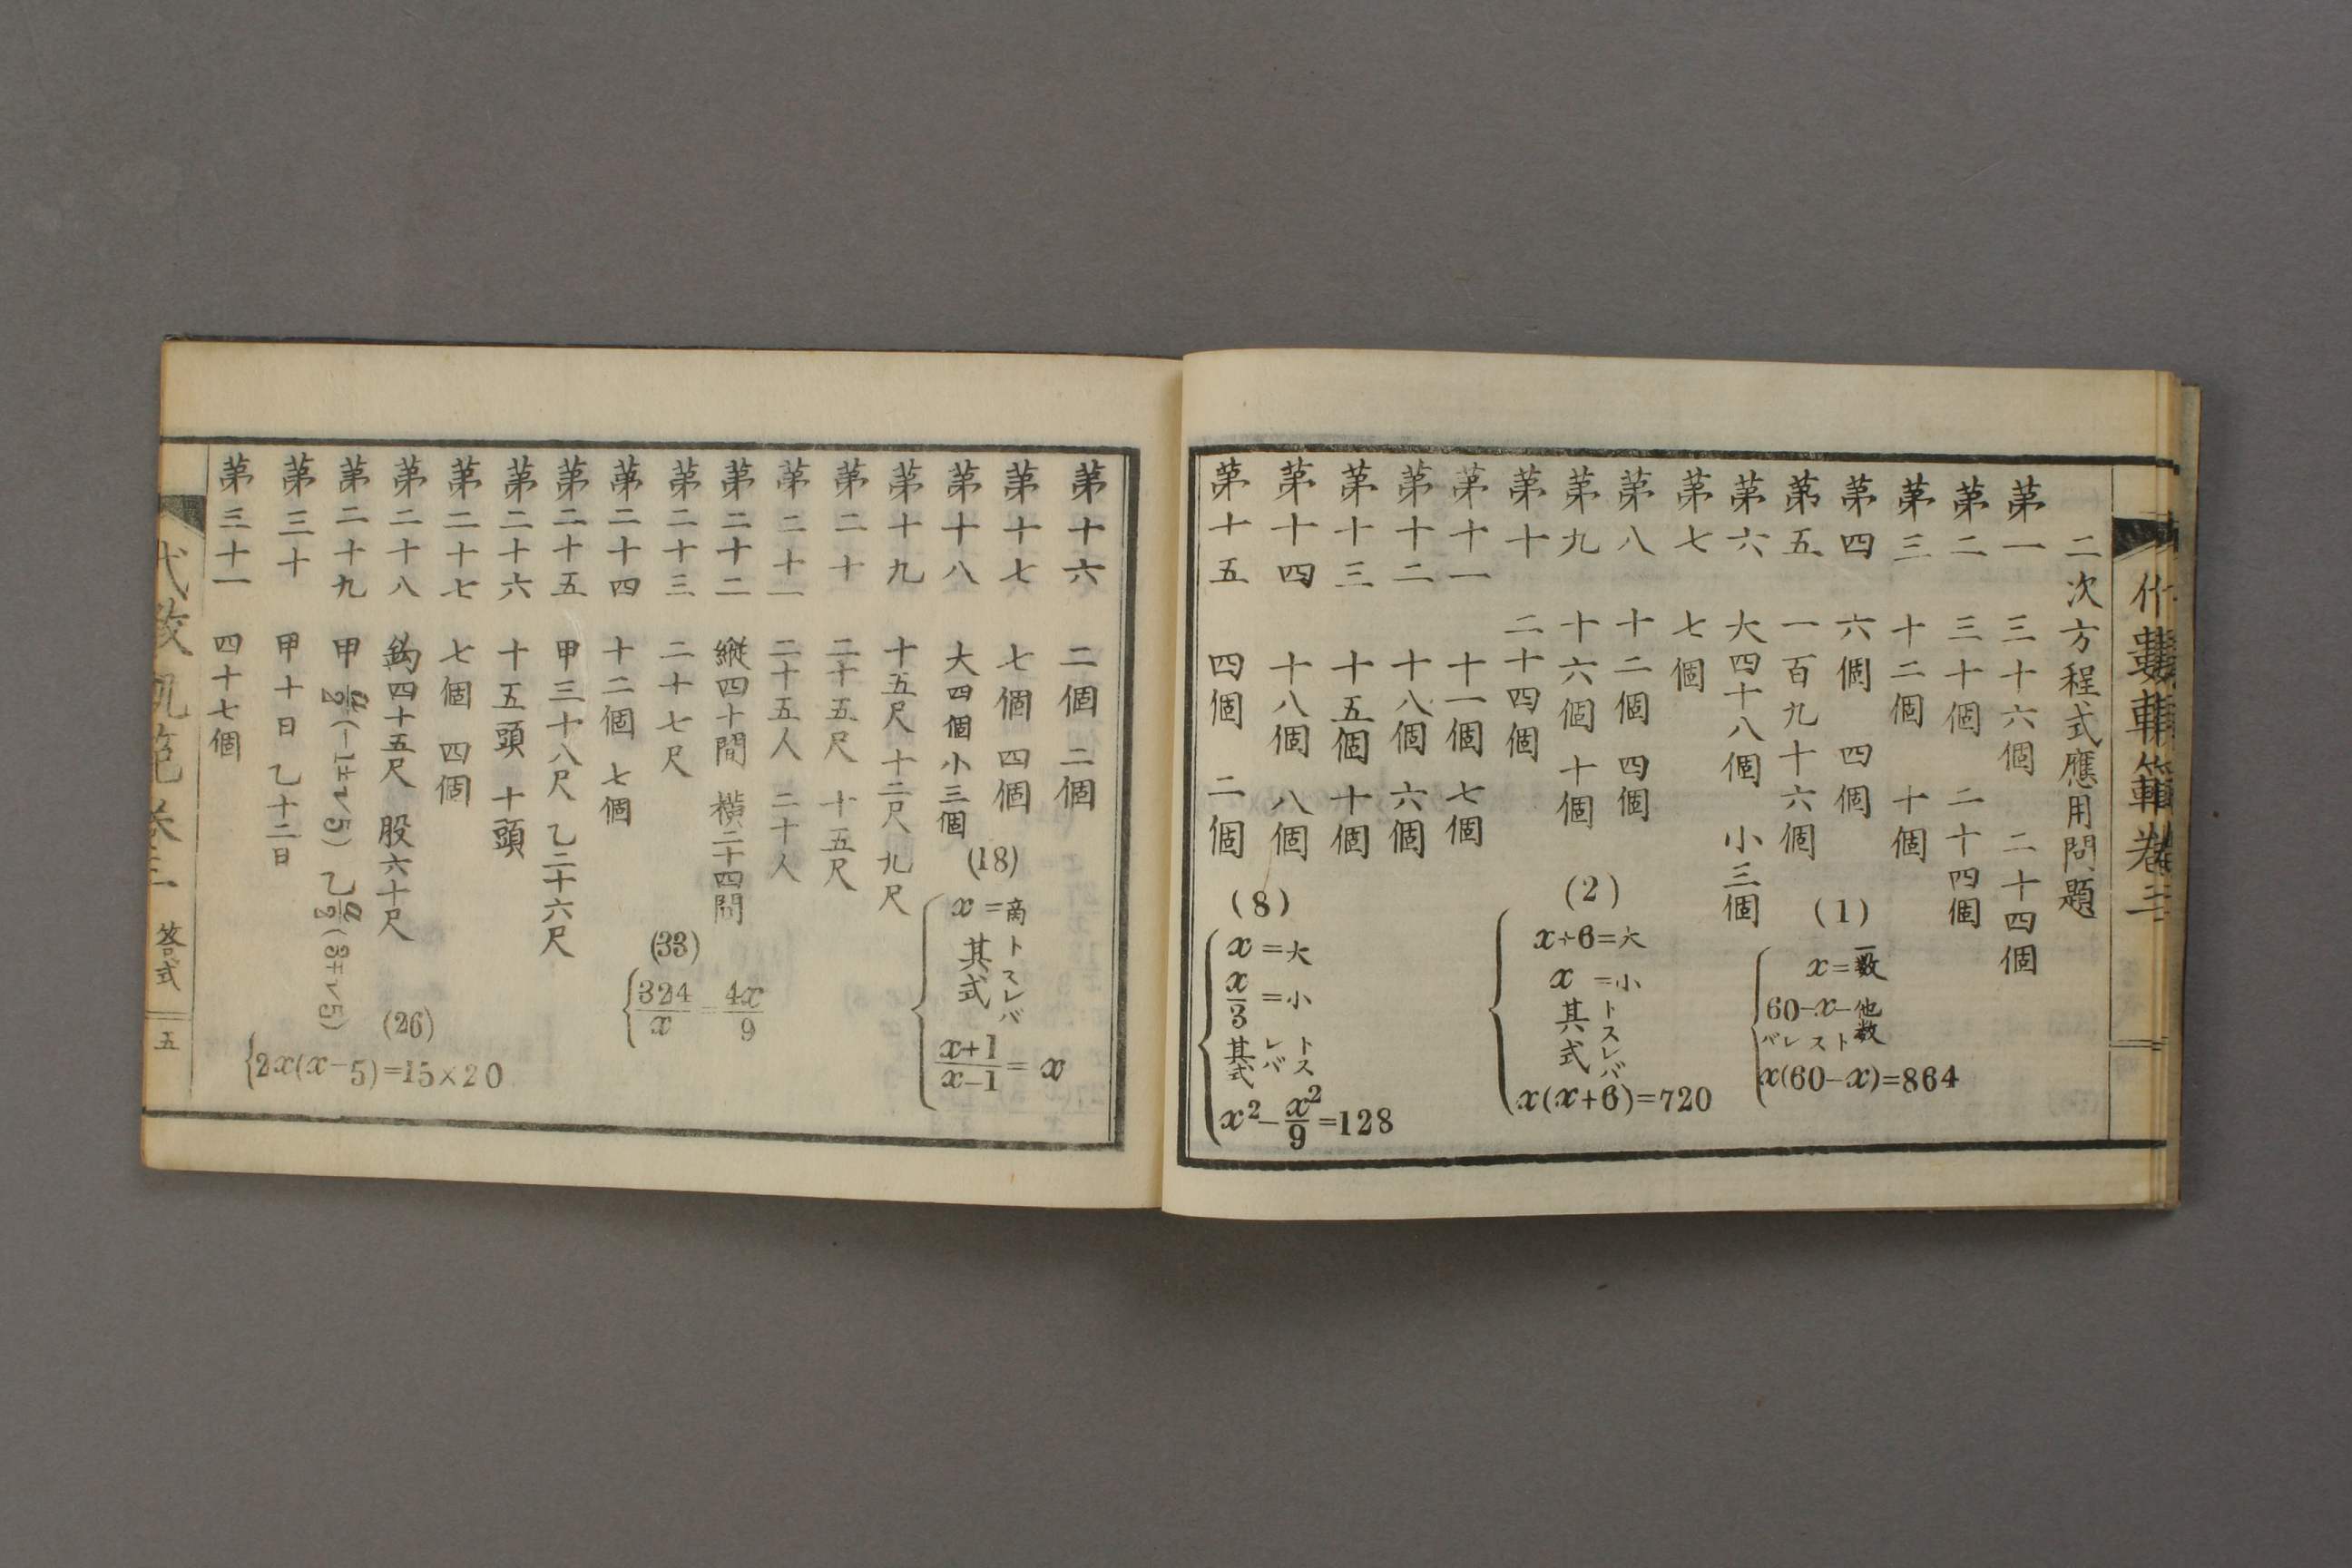 二次方程式應用問題
第一 三十六個 二十四個
第二 三十個 二十四個
第三 十二個 十個
第四 六個 四個
第五 一百九十六個
第六 大四十八個 小三個
第七 七個
第八 十二個 四個
第九 十六個 十個
第十 二十四個
第十一 十一個 七個
第十二 十八個 六個
第十三 十五個 十個
第十四 十八個 八個
第十五 四個 二個
(1)
x=一数
60-x-他数
トスレバ
x(60-x)=864
(2)
x+6=大
x=小
トスレバ
其式
x(x+6)=720
(8)
x=大
x/3=小
トスレバ
其式
x²-x²/9=128
第十六 二個 二個
第十七 七個 四個
第十八 大四個 小三個
第十九 十五尺 十二尺 九尺
第二十 二十五尺 十五尺
第二十一 二十五人 二十人
第二十二 縦四十間 横二十四間
第二十三 二十七尺
第二十四 十二個 七個
第二十五 甲三十八尺 乙二十六尺
第二十六 十五頭 十頭
第二十七 七個 四個
第二十八 鈎四十五尺 股六十尺
第二十九 甲a/2(-1±√5) 乙a/2(3∓√5)
第三十 甲十日 乙十二日
第三十一 四十七個
(18)
x=商
トスレバ
其式
x+1/x-1=x
(33)
324/x=4x/9
(26)
2x(x-5)=15×20
代数規範巻三 答式 五